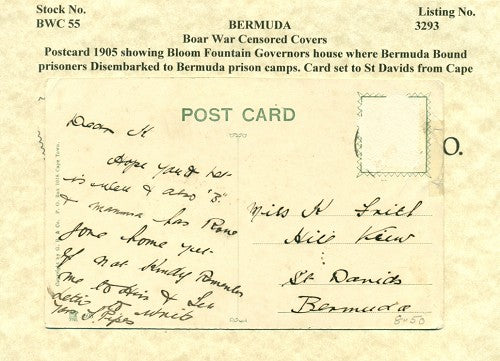 Stock No.
BWC 55
BERMUDA
Listing No.
3293
Boar War Censored Covers
Postcard 1905 showing Bloom Fountain Governors house where Bermuda Bound
prisoners Disembarked to Bermuda prison camps. Card set to St Davids from Cape
POST CARD
O.
Dear K
Hope you &
is well & also "B"
& mamma has Rose
gone home yet
If not Kindly Remember
me to Him &
write
Yrs S. Pipes
Miss K
Hill View
St Davids
Bermuda
8-50